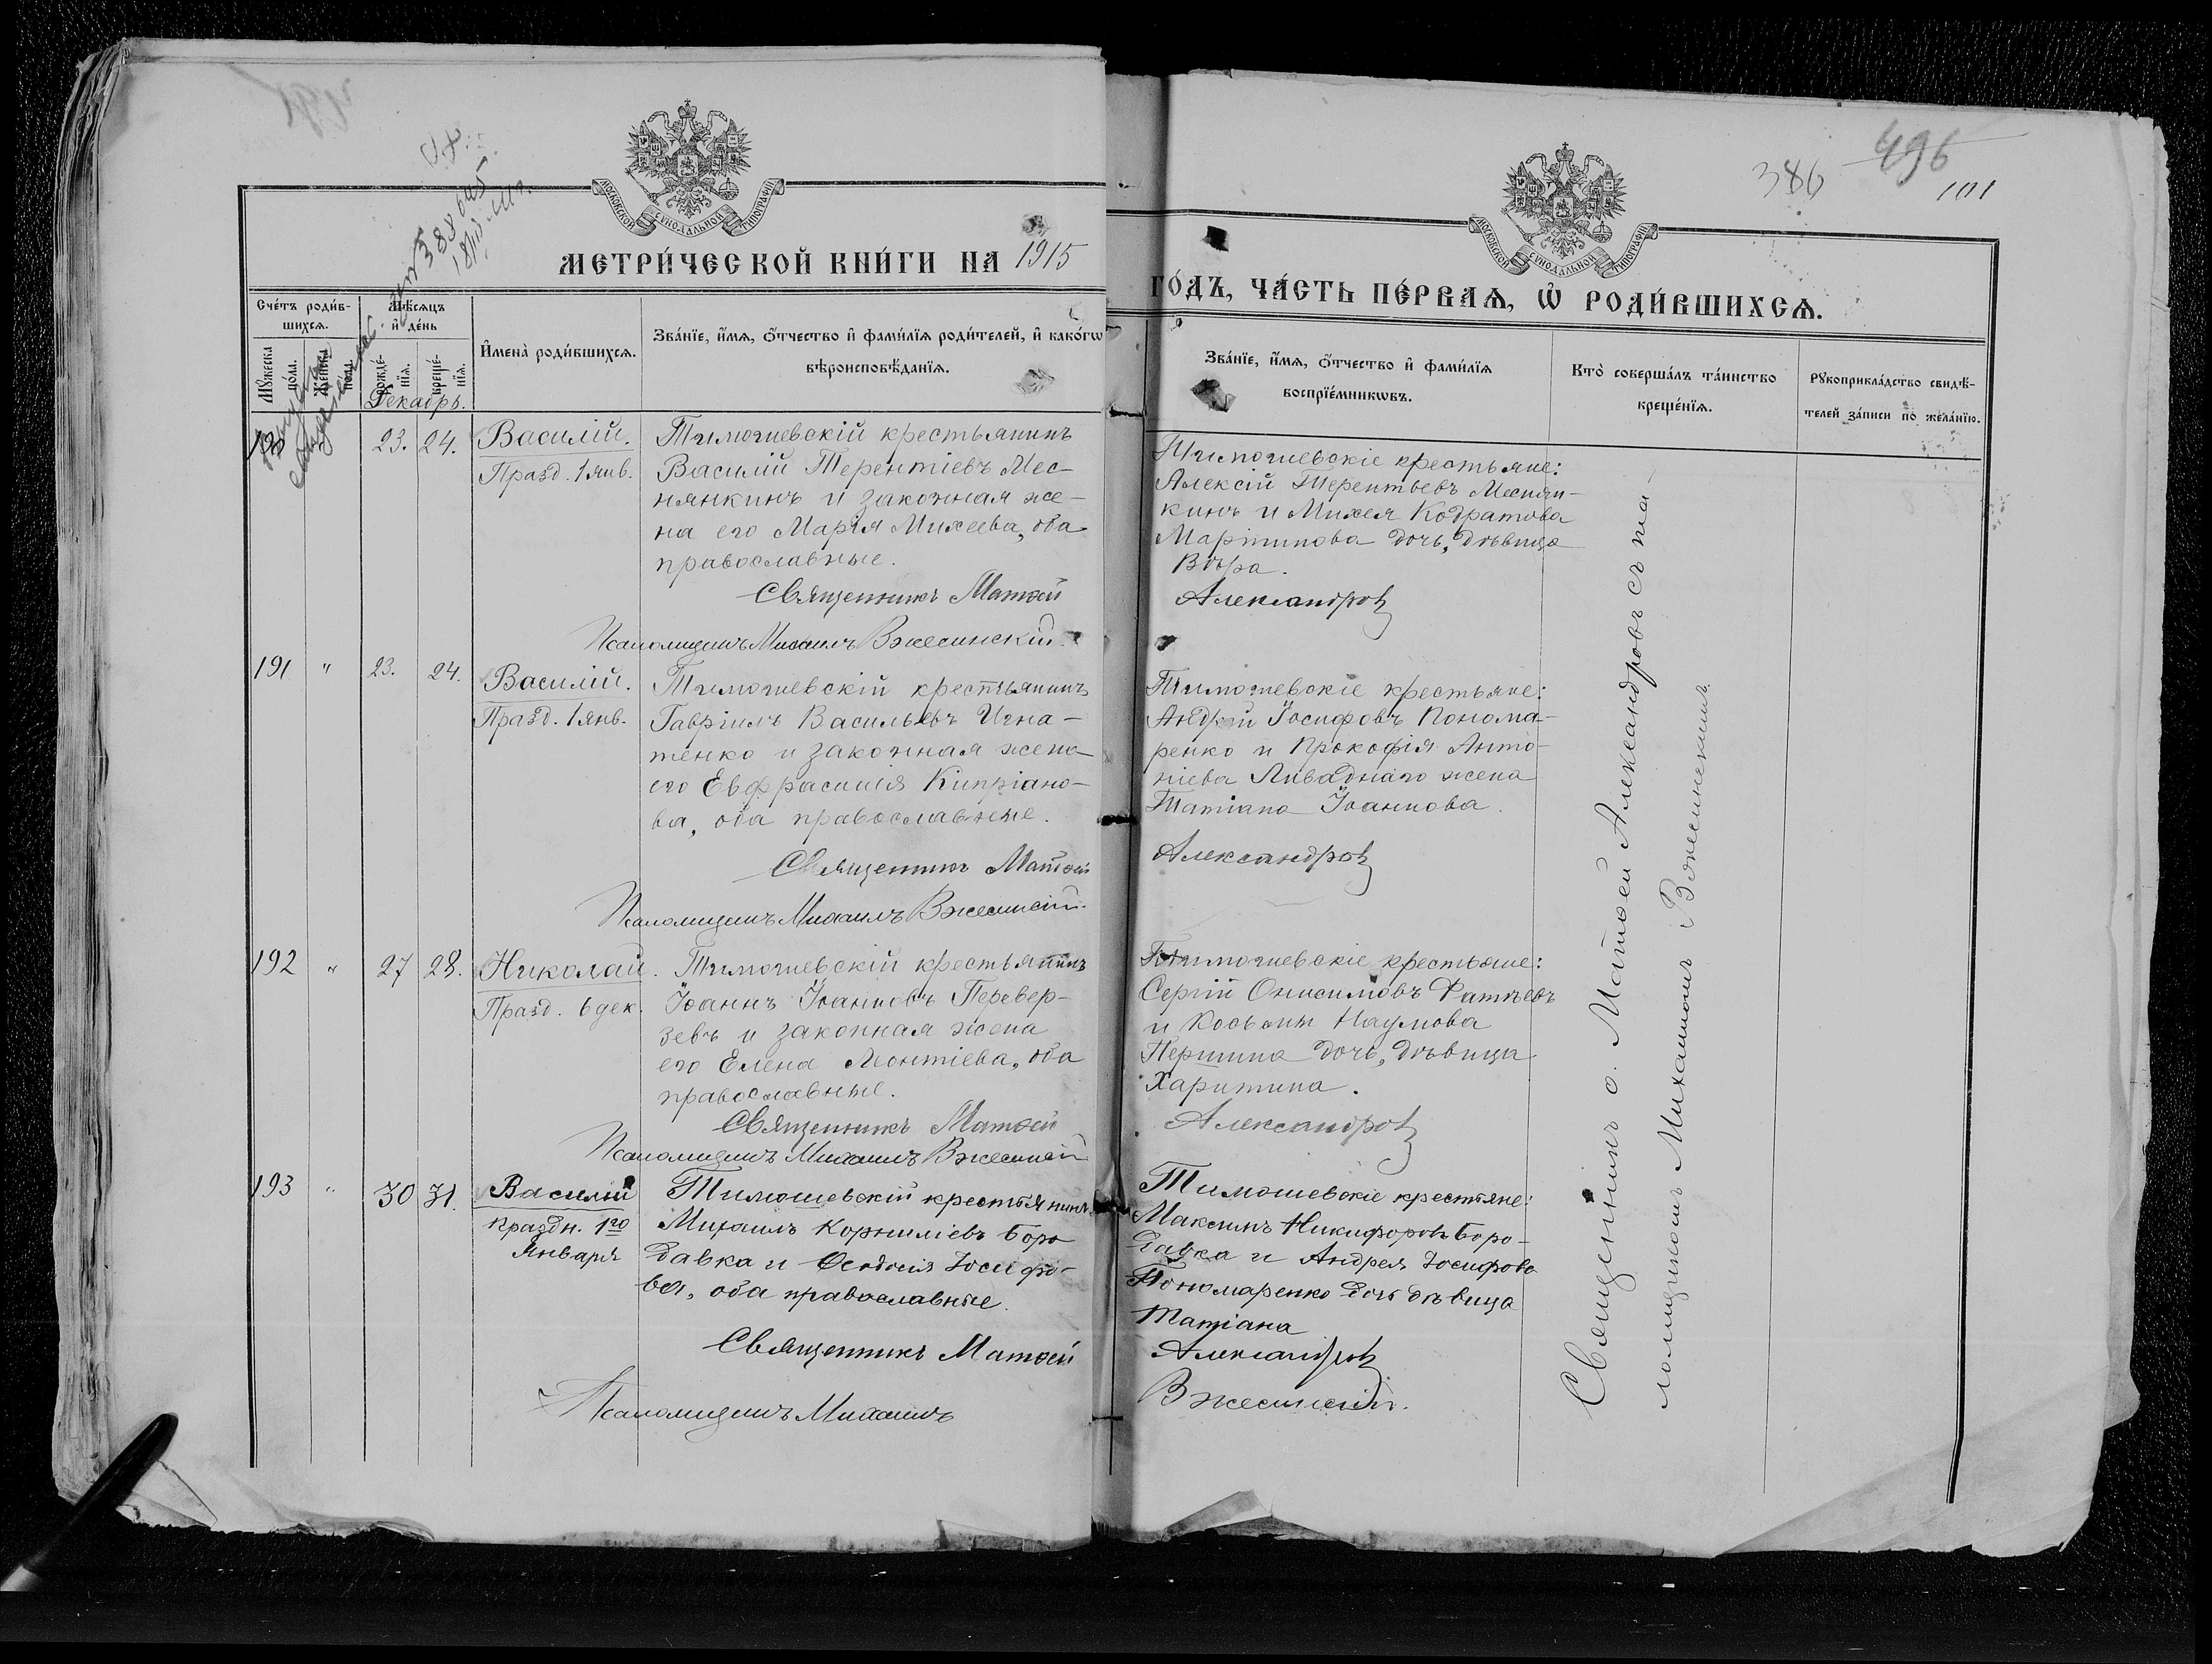 386
496
101
МОСКОВСКОЙ СѴНОДАЛЬНОЙ ТИПОГРАФІИ
МОСКОВСКОЙ СѴНОДАЛЬНОЙ ТИПОГРАФІИ
МЕТРИ́ЧЕСКОЙ КНИ́ГИ НА 1915
ГО́ДЪ, ЧА́СТЬ ПЕ́РВАѦ, Ѡ РОДИ́ВШИХСѦ.
Сче́тъ роди́в-
шихсѧ.
Мѣ́сѧцъ
и҆ де́нь
Мꙋ́жеска по́ла.
Же́нска по́ла.
Рожде́-
нїѧ.
Креще́-
нїѧ.
И҆мена̀ роди́вшихсѧ.
Зва́нїе, и҆́мѧ, ѻ҆́тчество и҆ фами́лїѧ роди́телей, и҆ како́гѡ
вѣроисповѣ́данїѧ.
Зва́нїе, и҆́мѧ, ѻ҆́тчество и҆ фами́лїѧ
воспрїе́мникѡвъ.
Кто̀ соверша́лъ та́инство
креще́нїѧ.
Рꙋкоприкла́дство свидѣ́-
телей за́писи по жела́нїю.
Декабрь.
190
23. 24.
Василій.
Празд. 1 янв.
Тимошевскій крестьянинъ
Василій Терентіевъ Мес-
нянкинъ и законная же-
на его Марія Михеева, оба
православные.
Священникъ Матѳей
Псаломщикъ Михаилъ Вжесинскій.
Тимошевскіе крестьяне:
Алексій Терентьевъ Меснян-
кинъ и Михея Кодратова
Мартинова дочь, дѣвица
Вѣра.
Александровъ
191 " 23. 24.
Василій.
Празд. 1 янв.
Тимошевскій крестьянинъ
Гавріилъ Васильевъ Игна-
тенко и законная жена
его Евфрасинія Кипріано-
ва, оба православные.
Священникъ Матѳей
Псаломщикъ Михаилъ Вжесинскій.
Тимошевскіе крестьяне:
Андрей Іосифовъ Понома-
ренко и Прокофія Анто-
ніева Ливаднаго жена
Татіана Іоаннова.
Александровъ
192 " 27 28.
Николай.
Празд. 6 дек.
Тимошевскій крестьянинъ
Іоаннъ Іоанновъ Перевер-
зевъ и законная жена
его Елена Леонтіева, оба
православные.
Священникъ Матѳей
Псаломщикъ Михаилъ Вжесинскій
Тимошевскіе крестьяне:
Сергій Онисимовъ Фатѣевъ
и Косьмы Наумова
Першина дочь, дѣвица
Харитина.
Александровъ
193 " 30 31.
Василій
праздн. 1го
Января
Тимошевскій крестьянинъ
Михаилъ Корниліевъ Боро
давка и Ѳеодосія Іосифо-
ва, оба православные.
Священникъ Матѳей
Псаломщикъ Михаилъ
Тимошевскіе крестьяне:
Максимъ Никифоровъ Боро-
давка и Андрея Іосифова
Пономаренко дочь дѣвица
Татіана
Александровъ
Вжесинскій.
Священникъ о. Матѳей Александровъ съ пса-
ломщикомъ Михаиломъ Вжесинскимъ.